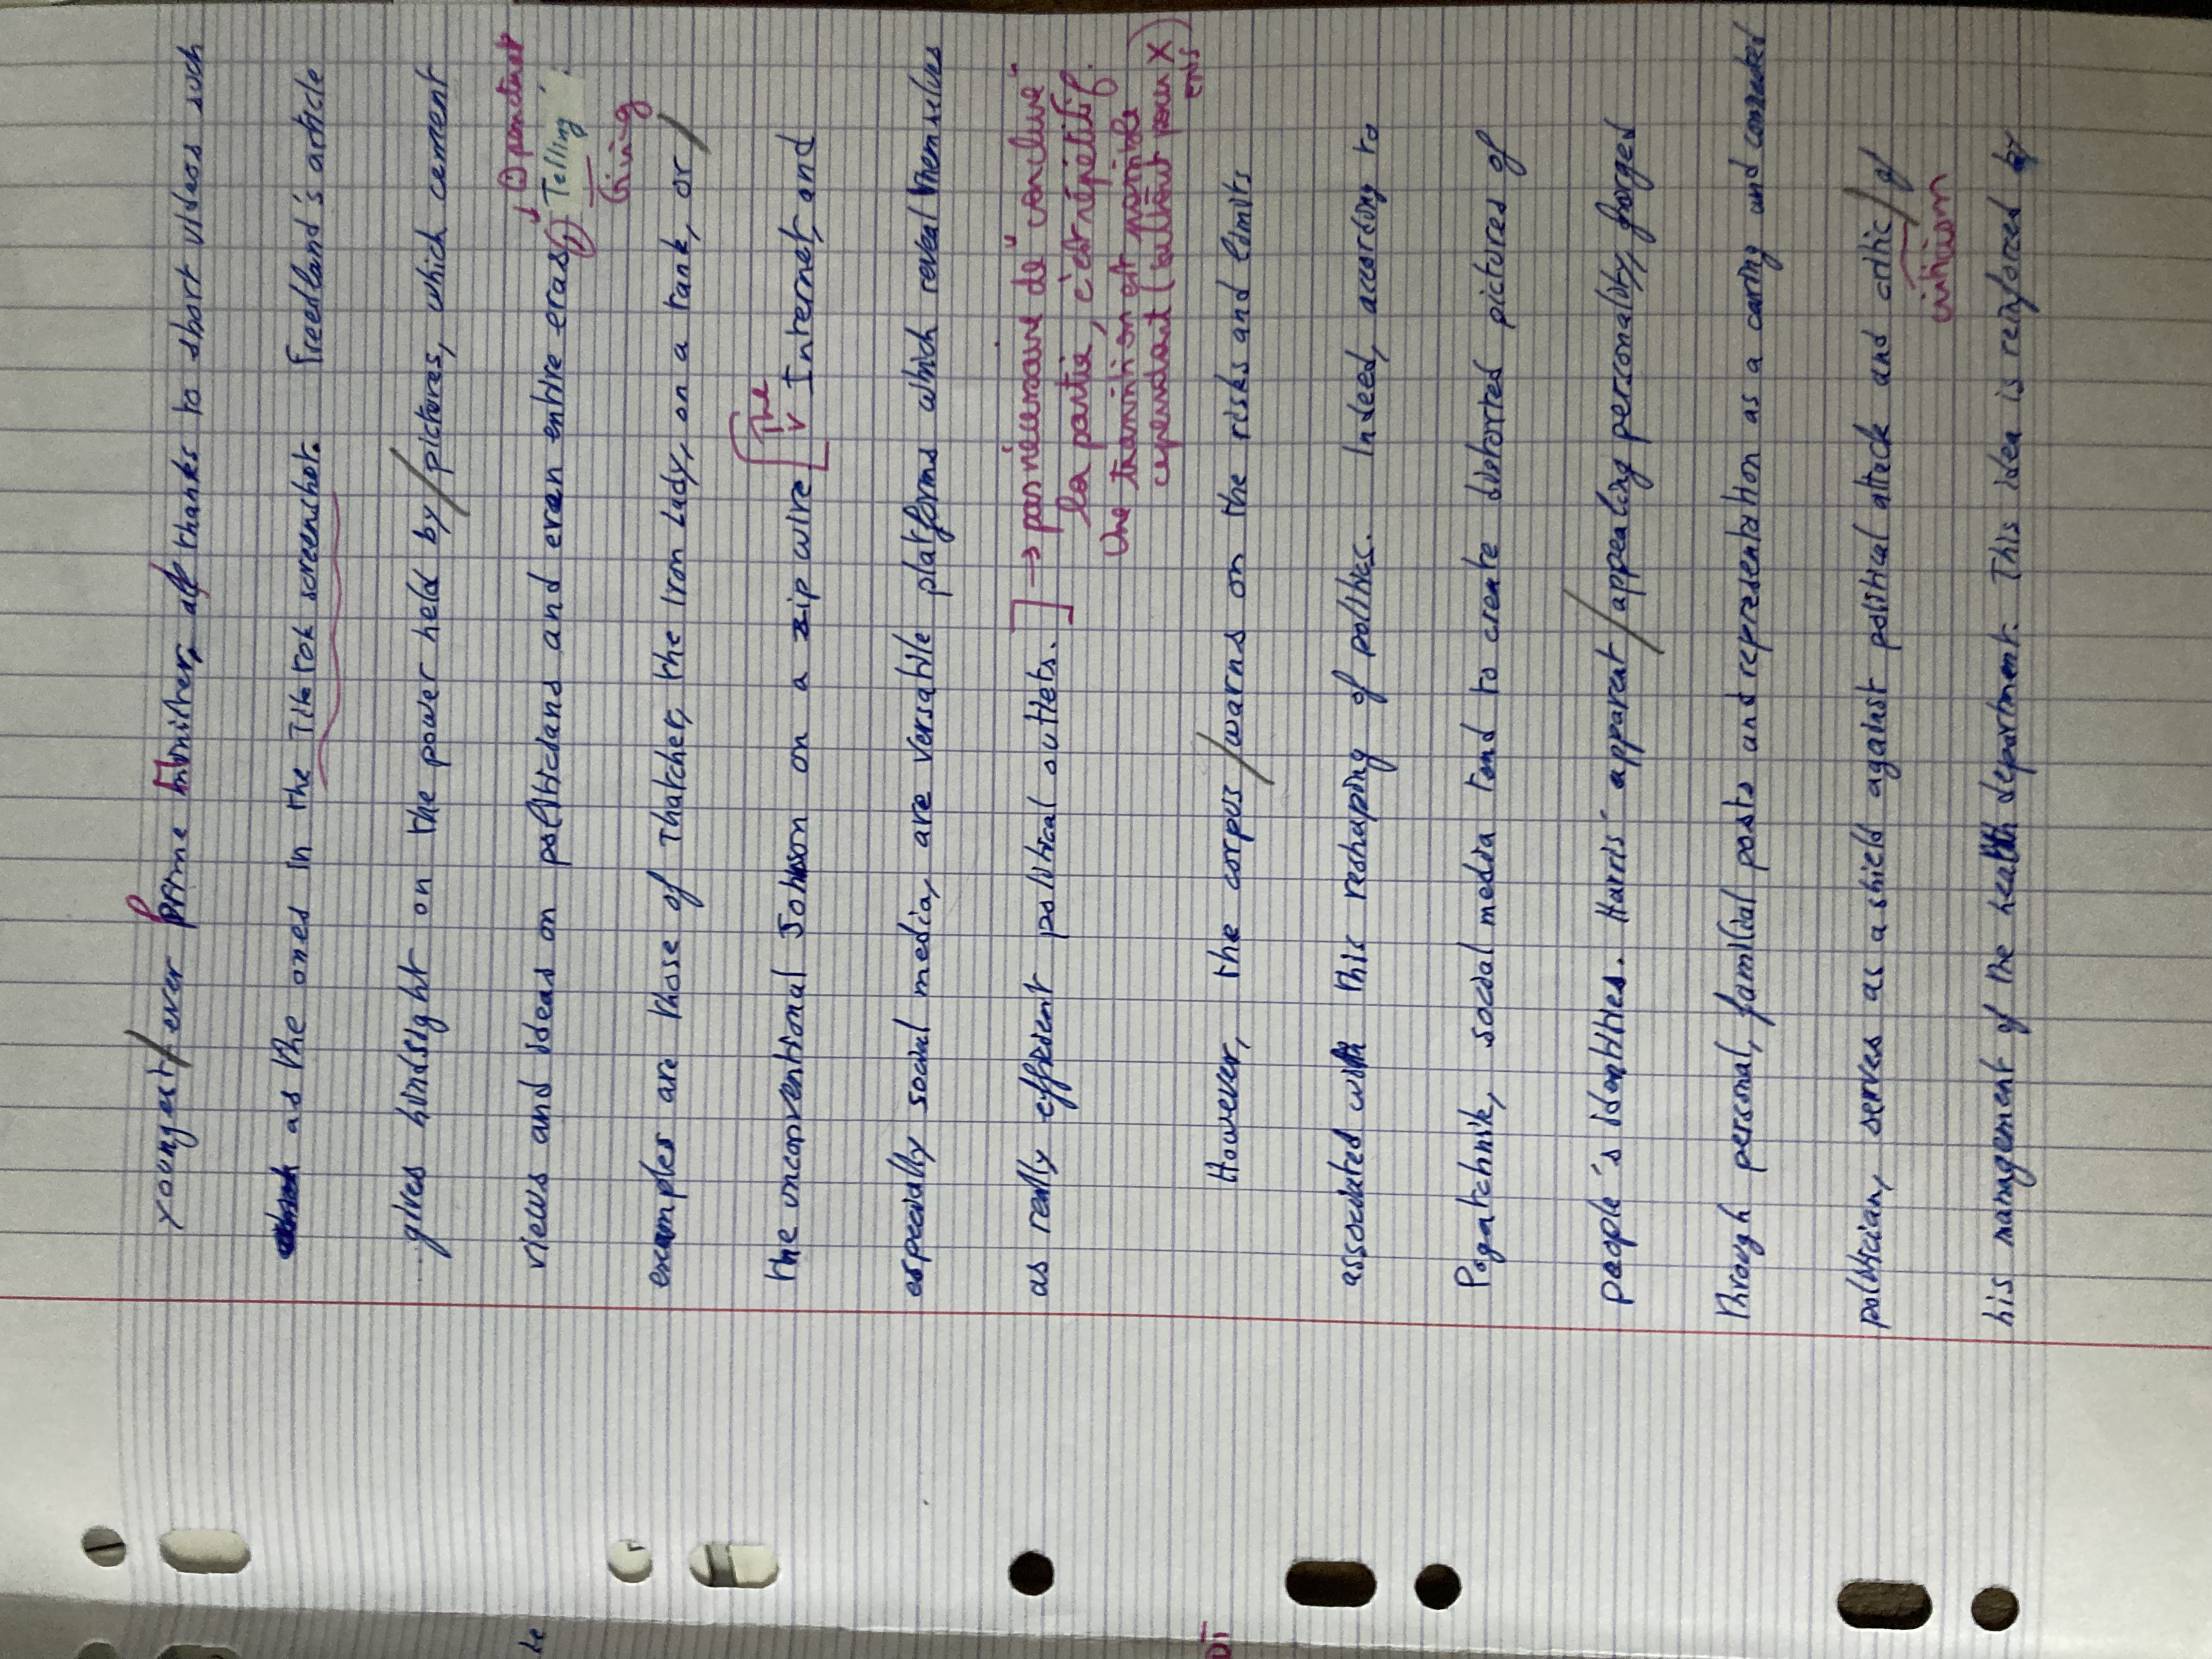 youngest / ever Prime Minister, thanks to short videos such
as the ones in the TikTok screenshot. Freedland's article
gives hindsight on the power held by / pictures, which cement
⊕ ponctuat°
views and ideas on politicians and even entire eras, Telling
Timing
examples are those of Thatcher, the Iron Lady, on a tank, or /
The
the unconventional Johnson on a zip wire Internet, and
especially social media, are versatile platforms which reveal themselves
as really efficient political outlets.] → pas nécessaire de "conclure"
la partie, c'est répétitif.
Une transition est possible
cependant (surtout pour X
ens)
However, the corpus / warns on the risks and limits
associated with this reshaping of politics. Indeed, according to
Pogatchnik, social media tend to create distorted pictures of
people's identities. Harris' apparent / appealing personality, forged
through personal, familial posts and representation as a caring and
politician, serves as a shield against political attack and critic / of
criticism
his management of the health department. This idea is reinforced by
be